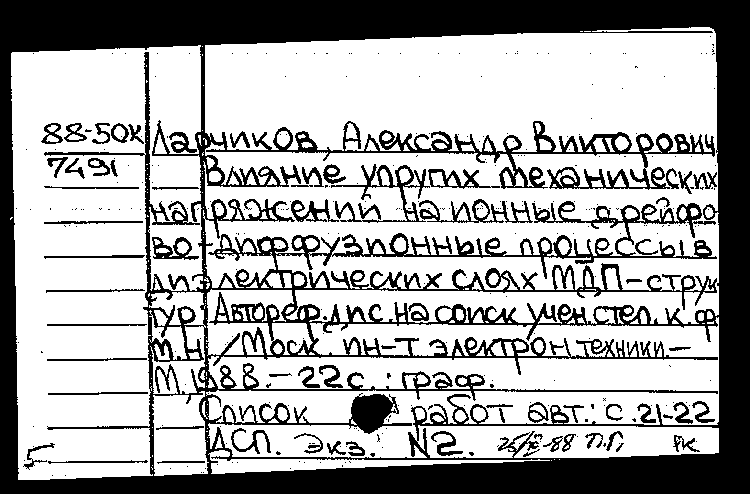 88-50К Ларчиков, Александр Викторович
7491 Влияние упругих механических
напряжений на ионные дрейфо
во-диффузионные процессы в
диэлектрических слоях МДП-струк
тур: Автореф. дис. на соиск. учен. степ. к. ф.
м. н. / Моск. ин-т электрон техники.-
М., 1988.-22с.: граф.
Список работ авт.: с. 21-22
ДСП. Экз. N2. -88 П.П
5